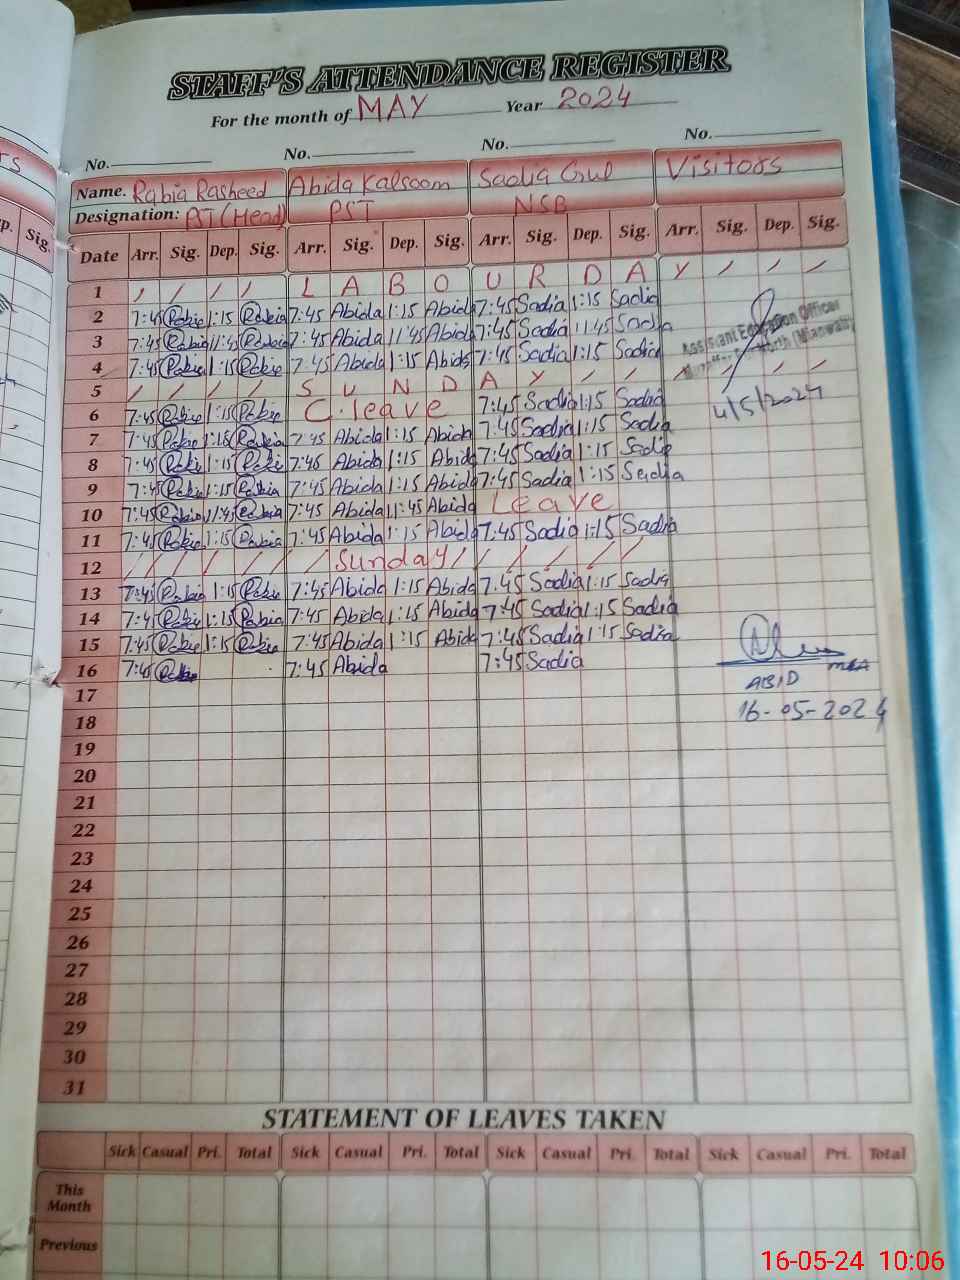 STAFF'S ATTENDANCE REGISTER
For the month of MAY Year 2024
No. No. No. No.
Name. Rabia Rasheed Abida Kalsoom Sadia Gul Visitors
Designation: PST (Head) PST NSB
Date Arr. Sig. Dep. Sig. Arr. Sig. Dep. Sig. Arr. Sig. Dep. Sig. Arr. Sig. Dep. Sig.
1 / / / / L A B O U R D A Y / / /
2 7:45 Rabia 1:15 Rabia 7:45 Abida 1:15 Abida 7:45 Sadia 1:15 Sadia
3 7:45 Rabia 11:45 Rabia 7:45 Abida 11:45 Abida 7:45 Sadia 11:45 Sadia
4 7:45 Rabia 1:15 Rabia 7:45 Abida 1:15 Abida 7:45 Sadia 1:15 Sadia
Assistant Education Officer
(Mianwali)
5 / / / / S U N D A Y / / / / / /
6 7:45 Rabia 1:15 Rabia C. leave 7:45 Sadia 1:15 Sadia 4/5/2024
7 7:45 Rabia 1:15 Rabia 7:45 Abida 1:15 Abida 7:45 Sadia 1:15 Sadia
8 7:45 Rabia 1:15 Rabia 7:45 Abida 1:15 Abida 7:45 Sadia 1:15 Sadia
9 7:45 Rabia 1:15 Rabia 7:45 Abida 1:15 Abida 7:45 Sadia 1:15 Sadia
10 7:45 Rabia 11:45 Rabia 7:45 Abida 11:45 Abida Leave
11 7:45 Rabia 1:15 Rabia 7:45 Abida 1:15 Abida 7:45 Sadia 1:15 Sadia
12 / / / / / Sunday / / / / / /
13 7:45 Rabia 1:15 Rabia 7:45 Abida 1:15 Abida 7:45 Sadia 1:15 Sadia
14 7:45 Rabia 1:15 Rabia 7:45 Abida 1:15 Abida 7:45 Sadia 1:15 Sadia
15 7:45 Rabia 1:15 Rabia 7:45 Abida 1:15 Abida 7:45 Sadia 1:15 Sadia
16 7:45 Rabia 7:45 Abida 7:45 Sadia
MEA
ABID
16-05-2024
17
18
19
20
21
22
23
24
25
26
27
28
29
30
31
STATEMENT OF LEAVES TAKEN
Sick Casual Pri. Total Sick Casual Pri. Total Sick Casual Pri. Total Sick Casual Pri. Total
This Month
Previous
16-05-24 10:06